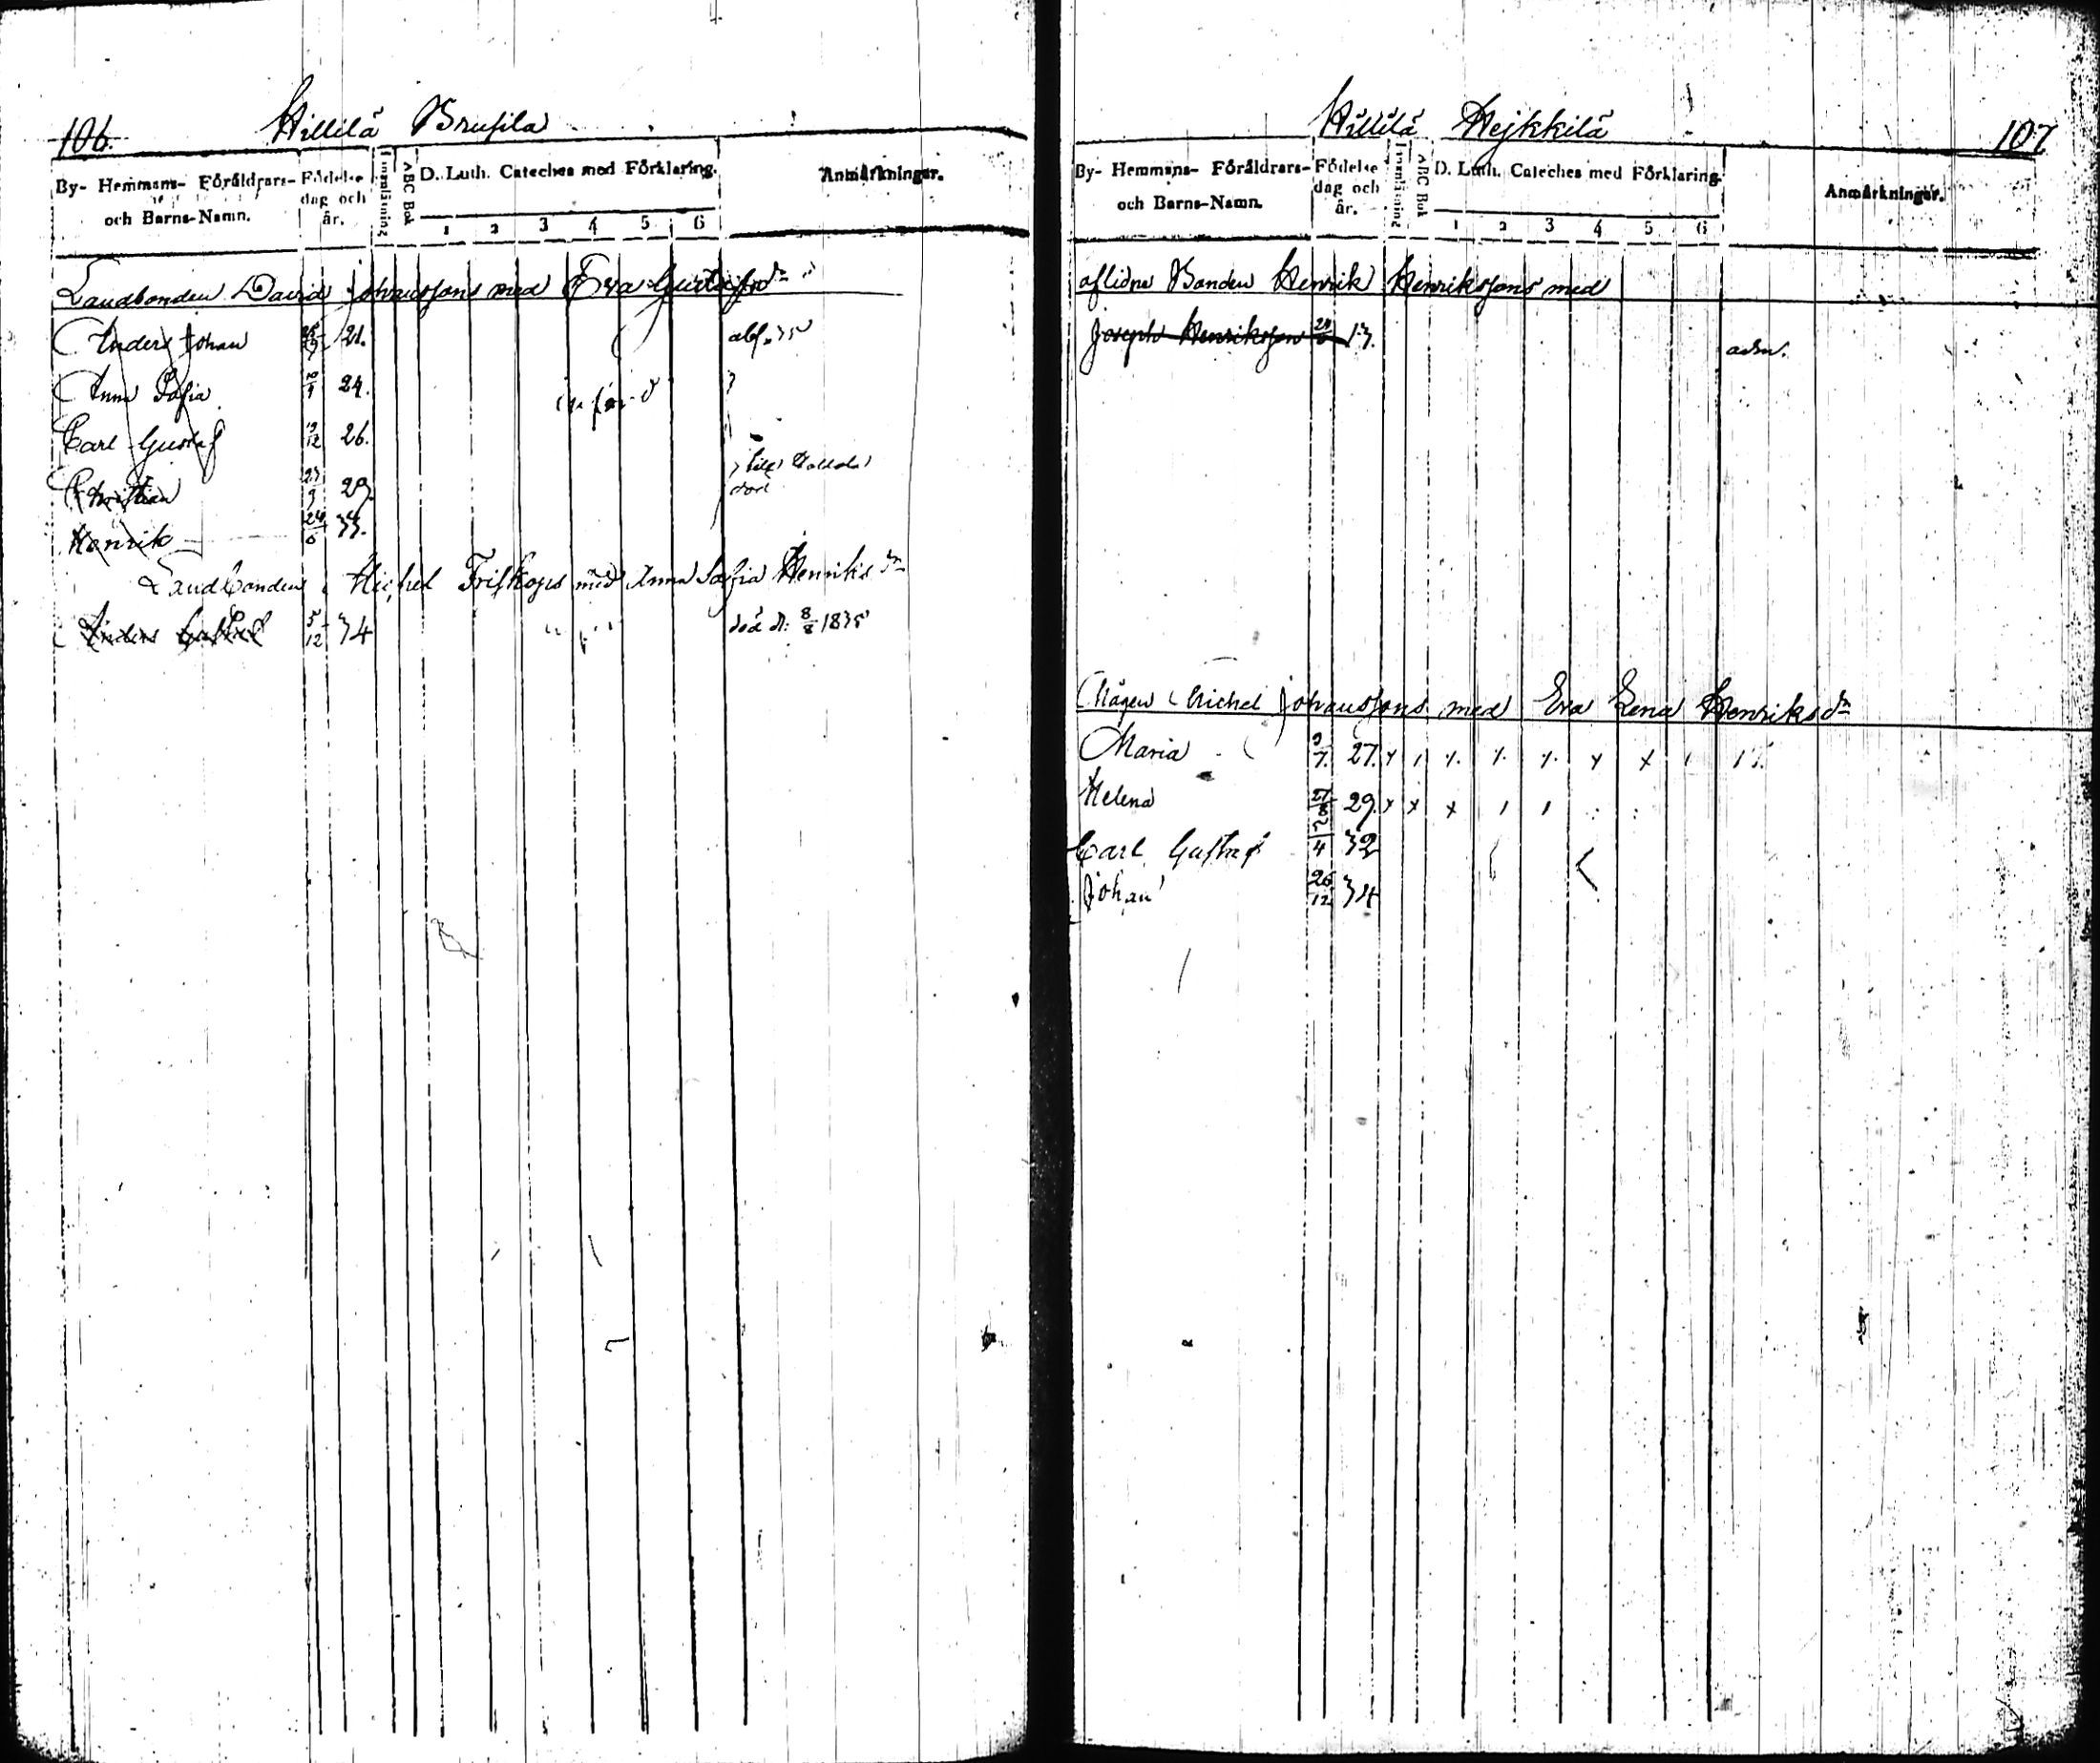 106. Hillilä Brusila
By- Hemmans- Föräldrars- och Barns-Namn. Födelse dag och år. Innanläsning ABC Bok D. Luth. Cateches med Förklaring. Anmärkningar.
1 2 3 4 5 6
Landbonden David Johanssons med Eva Gustafsdr
Anders Johan 21.
Anna Sofia 24.
Carl Gustaf 12 26.
till
Christian 29.
Henrik 24/6 33.
Landbonden Michel Friskops med Anna Sofia Henriksdr
Anders Gabriel 5/12 34 död d: 8/8 1835
Hillilä Hejkkilä 107
By- Hemmans- Föräldrars- och Barns-Namn. Födelse dag och år. Innanläsning ABC Bok D. Luth. Cateches med Förklaring. Anmärkningar.
1 2 3 4 5 6
aflidne Bonden Henrik Henrikssons med
Joseph Henriksson 17. adm.
Mågen Michel Johanssons med Eva Lena Henriksdr
Maria 9/7. 27.
Helena 27/8 29.
Carl Gustaf 28/4 32
Johan 26/12 34